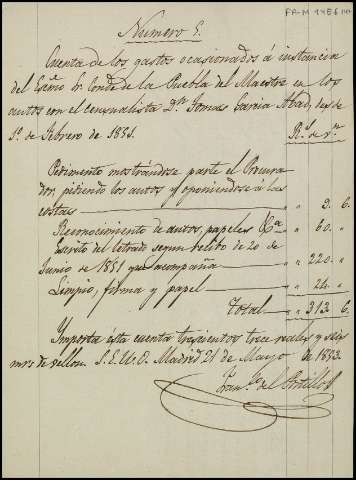 Numero 5.
Cuenta de los gastos ocasionados á instancia
del Exmo Sr. Conde de la Puebla del Maestre en los
autos con el censualista Dn. Tomas Garcia Abad, desde
1º. de Febrero de 1851.
Rs. de vn.
Pedimento mostrándose parte el Procura-
dor, pidiendo los autos y oponiendose á las
costas " " 9. 6.
Reconocimiento de autos, papeles &a. " " 60. "
Escrito del letrado segun recibo de 20 de
Junio de 1851 que acompaña " " 220. "
Limpio, firma y papel " " 24. "
Total " " 313. 6.
Importa ésta cuenta trescientos trece reales y seis
mrs. de vellon. S.E.U.O. Madrid 21 de Mayo de 1852.
Franco. del Portillo